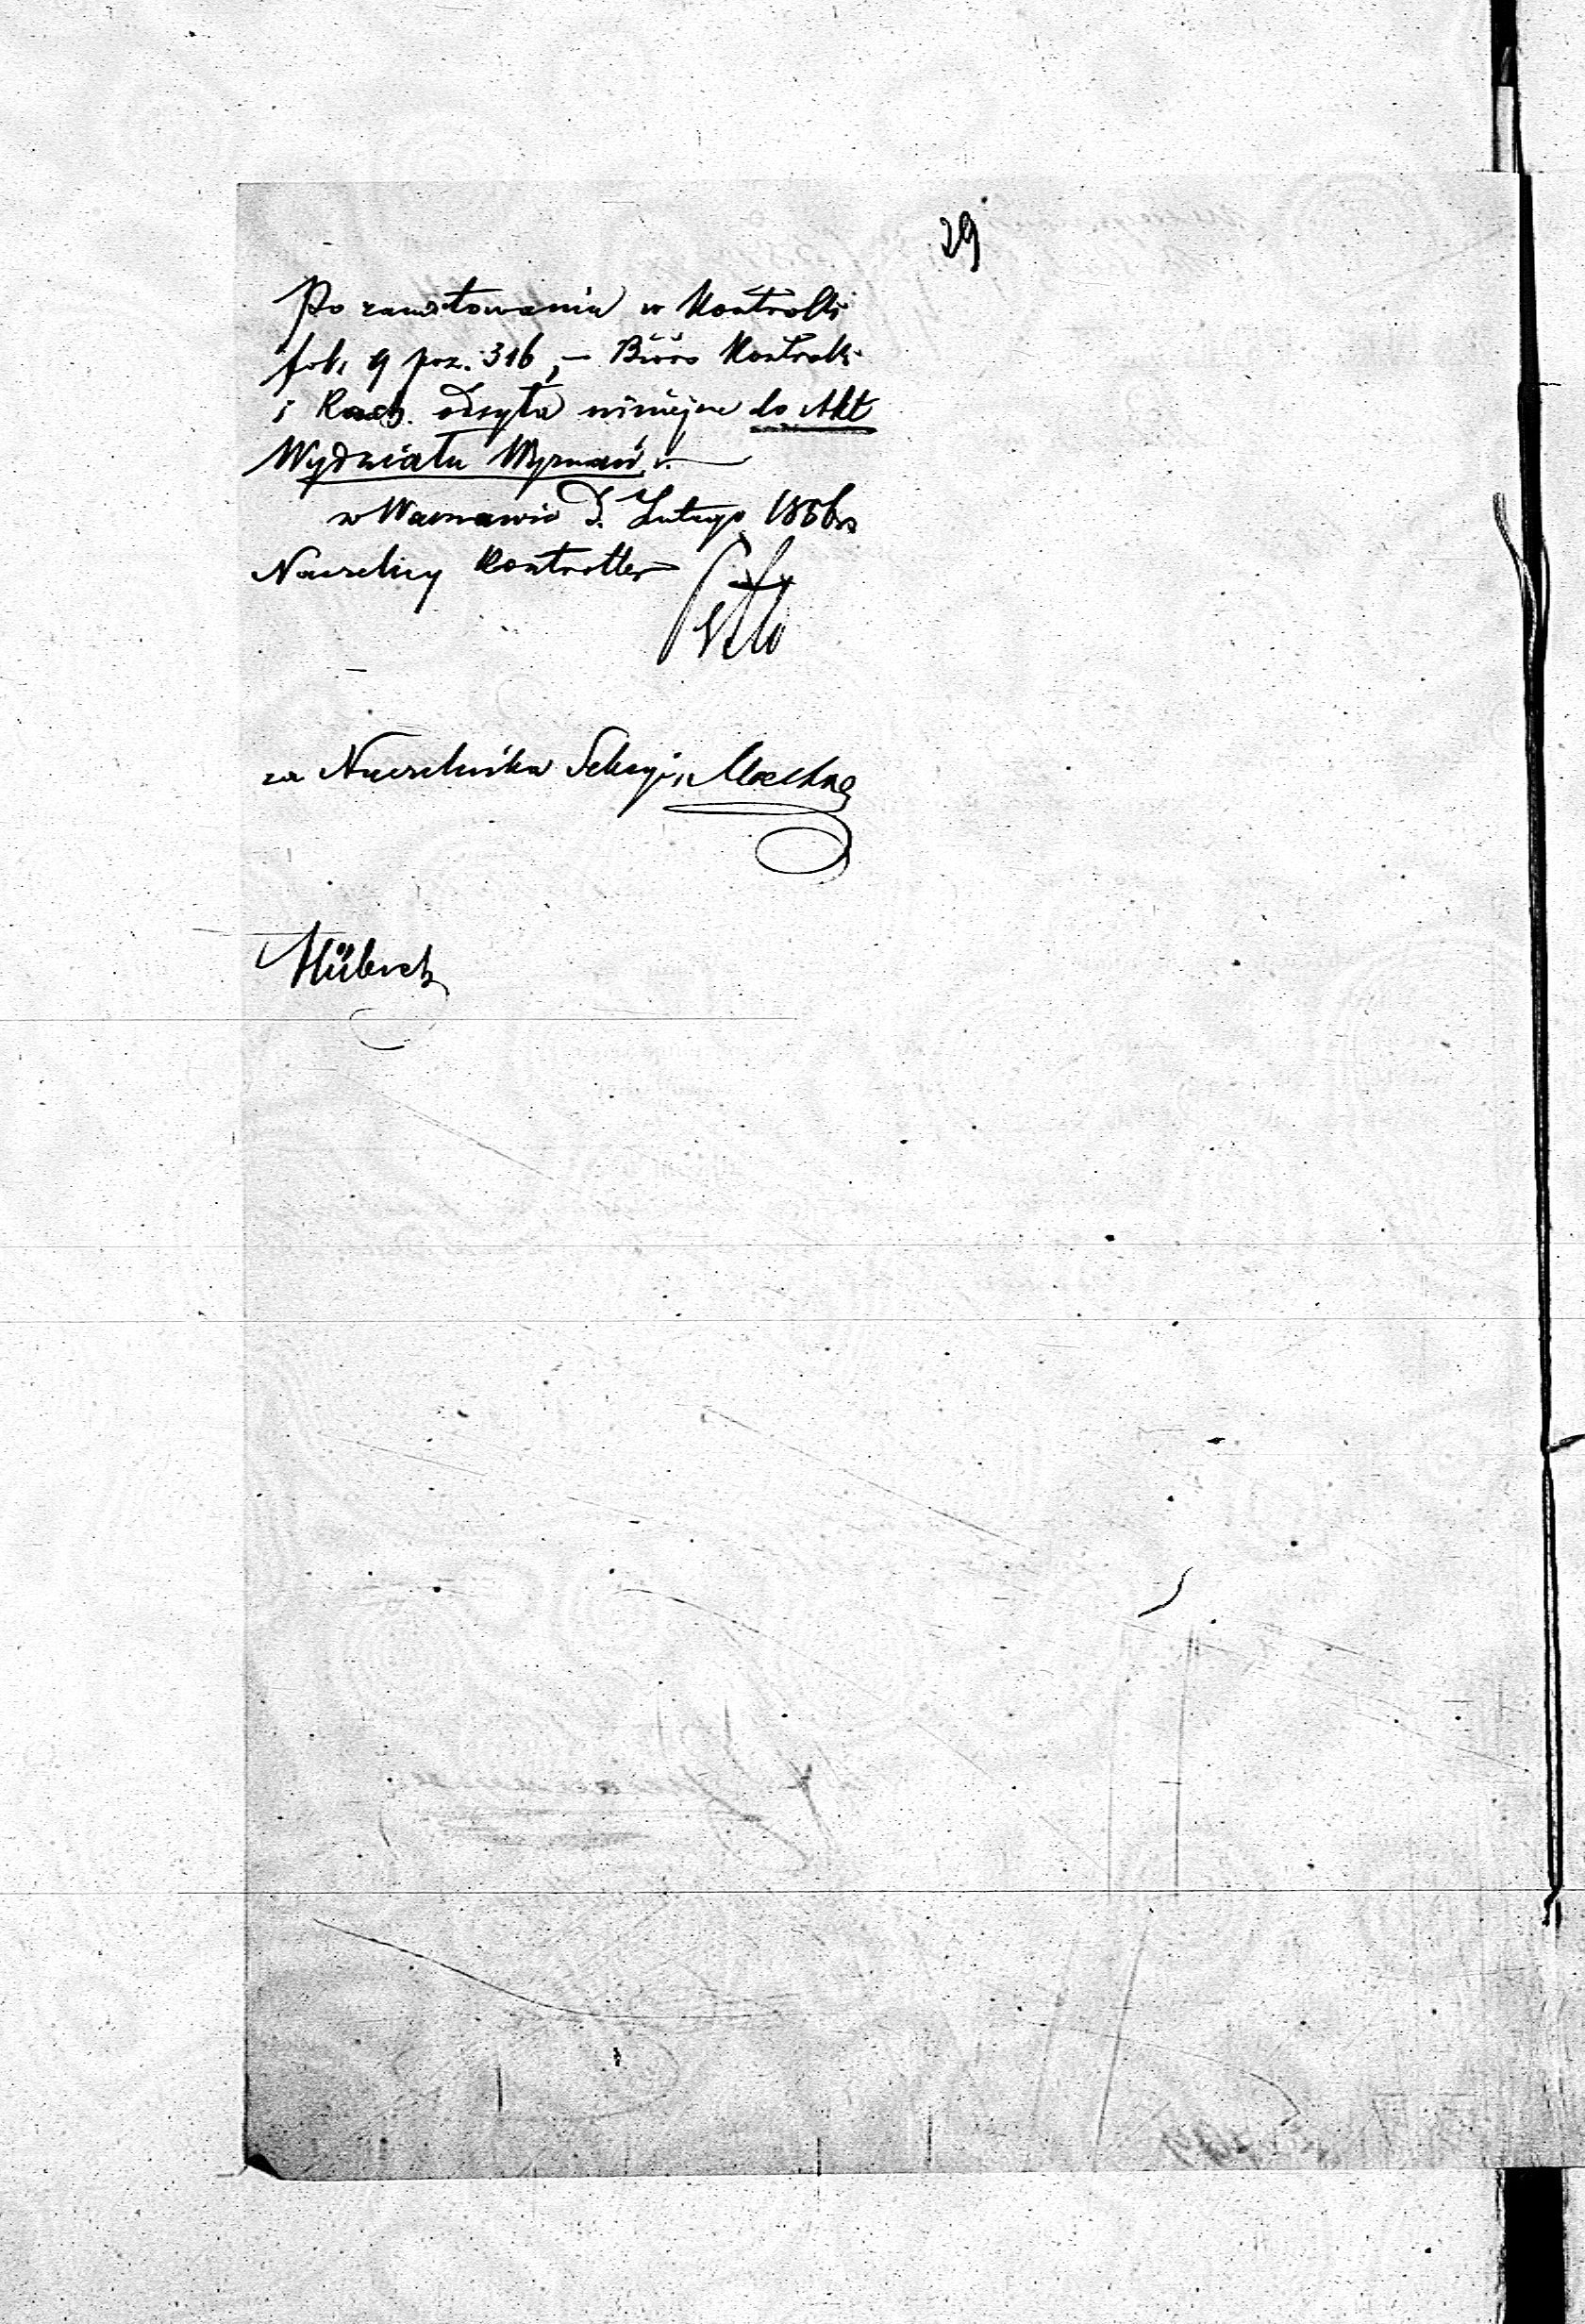 29
Po zanotowaniu w Kontrolli
fol. 9 poz. 316, – Biuro Kontroli
i Rach. odsyła niniejsze do Akt
Wydziału Wyznań. –
w Warszawie d. Lutego 1856 r.
Naczelny Kontroller
za Naczelnika Sekcyi,